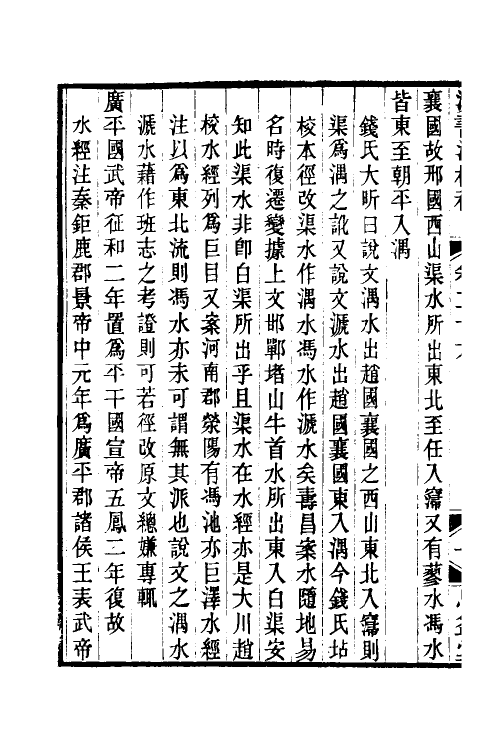 襄國故邢國西山渠水所出東北至任入寖又有蓼水馮水
皆東至朝平入湡
錢氏大昕曰說文湡水出趙國襄國之西山東北入寖則
渠爲湡之訛又說文㴲水出趙國襄國東入湡今錢氏坫
校本徑改渠水作湡水馮水作㴲水矣壽昌案水隨地易
名時復遷變據上文邯鄲堵山牛首水所出東入白渠安
知此渠水非卽白渠所出乎且渠水在水經亦是大川趙
校水經列爲巨目又案河南郡滎陽有馮池亦巨澤水經
注以爲東北流則馮水亦未可謂無其派也說文之湡水
㴲水藉作班志之考證則可若徑改原文總嫌專輒
廣平國武帝征和二年置爲平干國宣帝五鳳二年復故
水經注秦鉅鹿郡景帝中元年爲廣平郡諸侯王表武帝